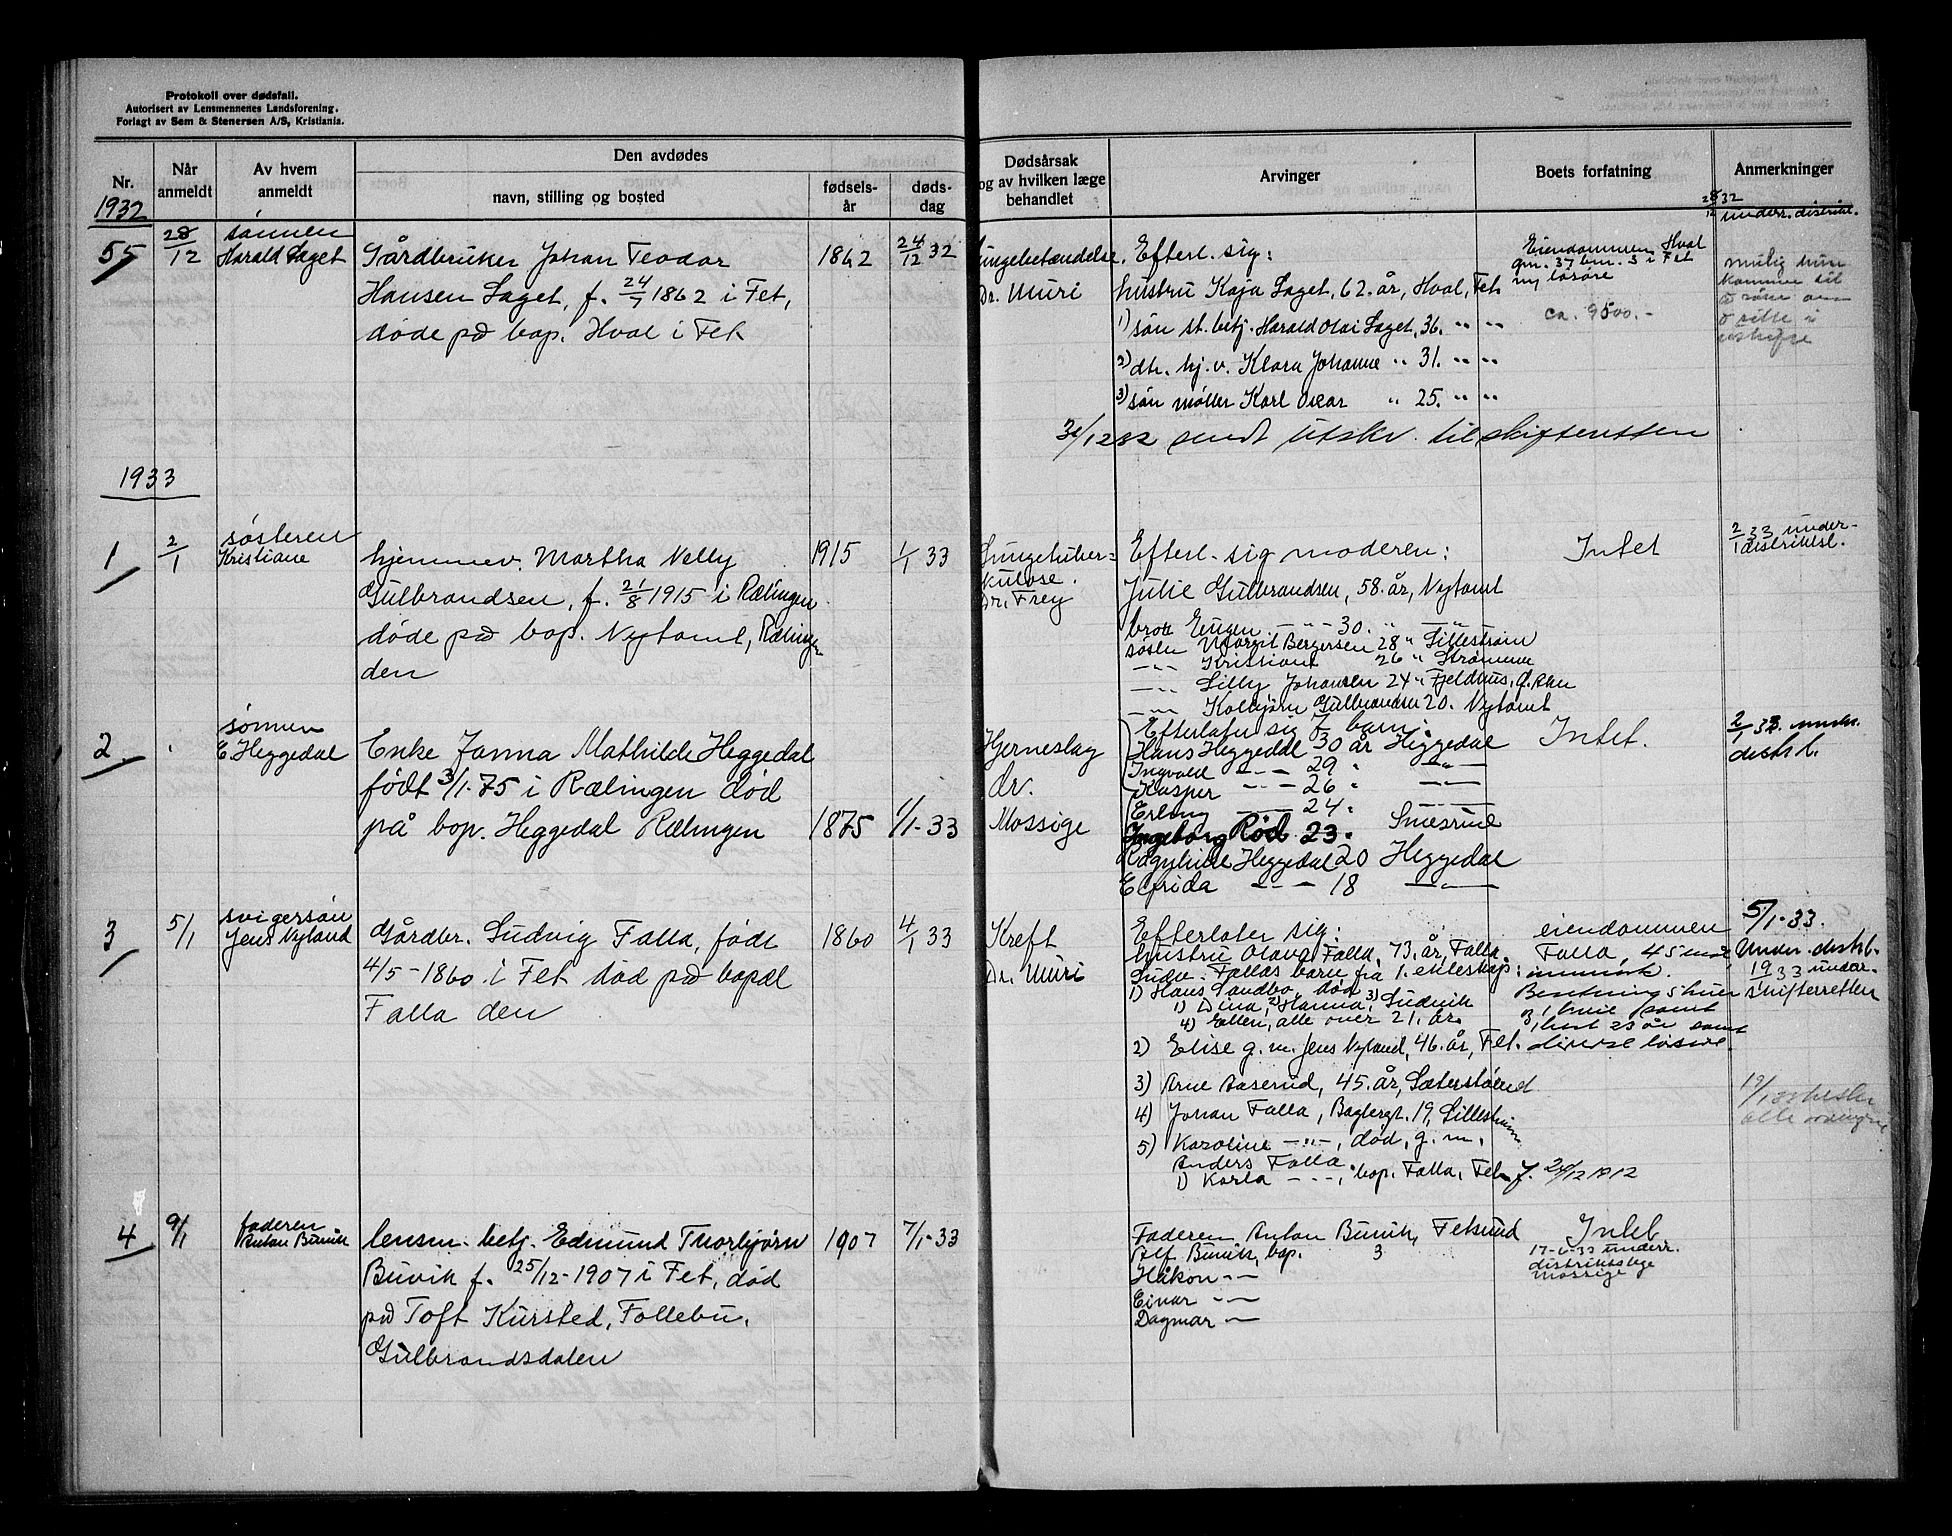 Protokoll over dødsfall.
Autorisert av Lensmennenes Landsforening.
Forlagt av Sem & Stenersen A/S, Kristiania.
Nr.
Når anmeldt
Av hvem anmeldt
Den avdødes
navn, stilling og bosted
fødsels-år
døds-dag
Dødsårsak
og av hvilken læge
behandlet
Arvinger
Boets forfatning
Anmerkninger
1932
28/12 32
underr. distriktl.
55
28/12
sønnen
Harald Saget
Gårdbruker Johan Teodor
Hansen Saget, f. 24/7 1862 i Fet,
døde på bop. Hval i Fet
1862
24/12 32
Lungebetændelse
Dr. Muri
Efterl. sig:
hustru Kaja Saget, 62. år, Hval, Fet
1) søn st. betj. Harald Olai Saget, 36. " "
2) dtr. hj. v. Klara Johanne " 31. " "
3) søn møller Karl Oscar " 25. " "
Eiendommen Hval
gn. 37 bnr. 3 i Fet
ca. 9500.-
31/12 32 sendt utskr. til skifteretten
1933
1
2/1
søsteren
Kristiane
hjemmev. Martha Nelly
Gulbrandsen, f. 21/8 1915 i Rælingen
døde på bop. Nytomt, Rælingen
den
1915
1/1 33
Lungetuber-
kulose.
Dr. Frey
Efterl. sig moderen:
Julie Gulbrandsen, 58. år, Nytomt
bror Eugen -"- 30. " -"-
søster Margit Bergersen 28 " Lillestrøm
-"- Kristiane 26 " Strømmen
-"- Lilly Johansen 24 " Fjeldhus,
-"- Kolbjørn Gulbrandsen 20. Nytomt
Intet
2/1 33 under-
distriktsl.
2
sønnen
E Heggedal
Enke Janna Mathilde Heggedal
født 3/1-75 i Rælingen død
på bop. Heggedal Rælingen
1875
1/1-33
Hjerneslag
dr.
Mossige
Efterlater sig 7 barn:
Hans Heggedal 30 år Heggedal
Ingvald -"- 29 " -"-
Kasper -"- 26 "
Erling 24 "
Ingeborg Rød 23.
Ragnhild Heggedal 20 Heggedal
Elfrida -"- 18 -"-
Intet.
2/1 33. underr.
distr. l.
3
5/1
svigersøn
Jens Nyland
Gårdbr. Ludvig Falla, født
4/5-1860 i Fet død på bopæl
Falla den
1860
4/1 33
Kreft
Dr. Muri
Efterlater sig:
hustru Olava Falla, 73. år, Falla.
Ludv. Fallas barn fra 1. ekteskap:
1) Hans Sandbo, død
1) Dina, 2) Hanna, 3) Ludvik
4) Ellen, alle over 21. år.
2) Elise g. m. Jens Nyland, 46. år, Fet.
3) Arne Aaserud, 45. år, Sæterstøend
4) Johan Falla, Bagergt. 19, Lillestrøm
5) Karoline -"-, død, g. m.
Anders Falla.
1) Karla -"-, bop. Falla, Fet f. 24/12 1912
eiendommen
Falla, 45 mål
innmark.
5/1-33.
Under. distr. l.
1933 under.
skifteretten
4
9/1
faderen
Anton Buvik
lensm. betj. Edmund Thorbjørn
Buvik f. 25/12-1907 i Fet, død
på Toft Kursted, Follebu,
Gulbrandsdalen
1907
7/1-33
Faderen Anton Buvik, Fetsund
Alf Buvik, bop. 3
Håkon -"-
Einar -"-
Dagmar -"-
Intet
17-6-33 underr.
distriktslege
Mossige